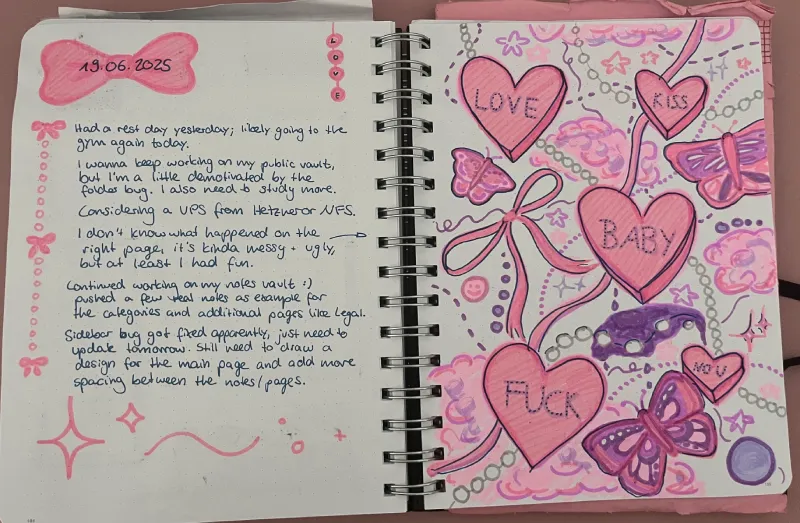 19.06.2025
LOVE
Had a rest day yesterday; likely going to the
gym again today.
I wanna keep working on my public vault,
but I'm a little demotivated by the
folder bug. I also need to study more.
Considering a VPS from Hetzner or NFS.
I don't know what happened on the
right page, it's kinda messy + ugly,
but at least I had fun.
Continued working on my notes vault :)
pushed a few real notes as example for
the categories and additional pages like Legal.
Sidebar bug got fixed apparently, just need to
update tomorrow. Still need to draw a
design for the main page and add more
spacing between the notes/pages.
LOVE
KISS
BABY
NO U
FUCK